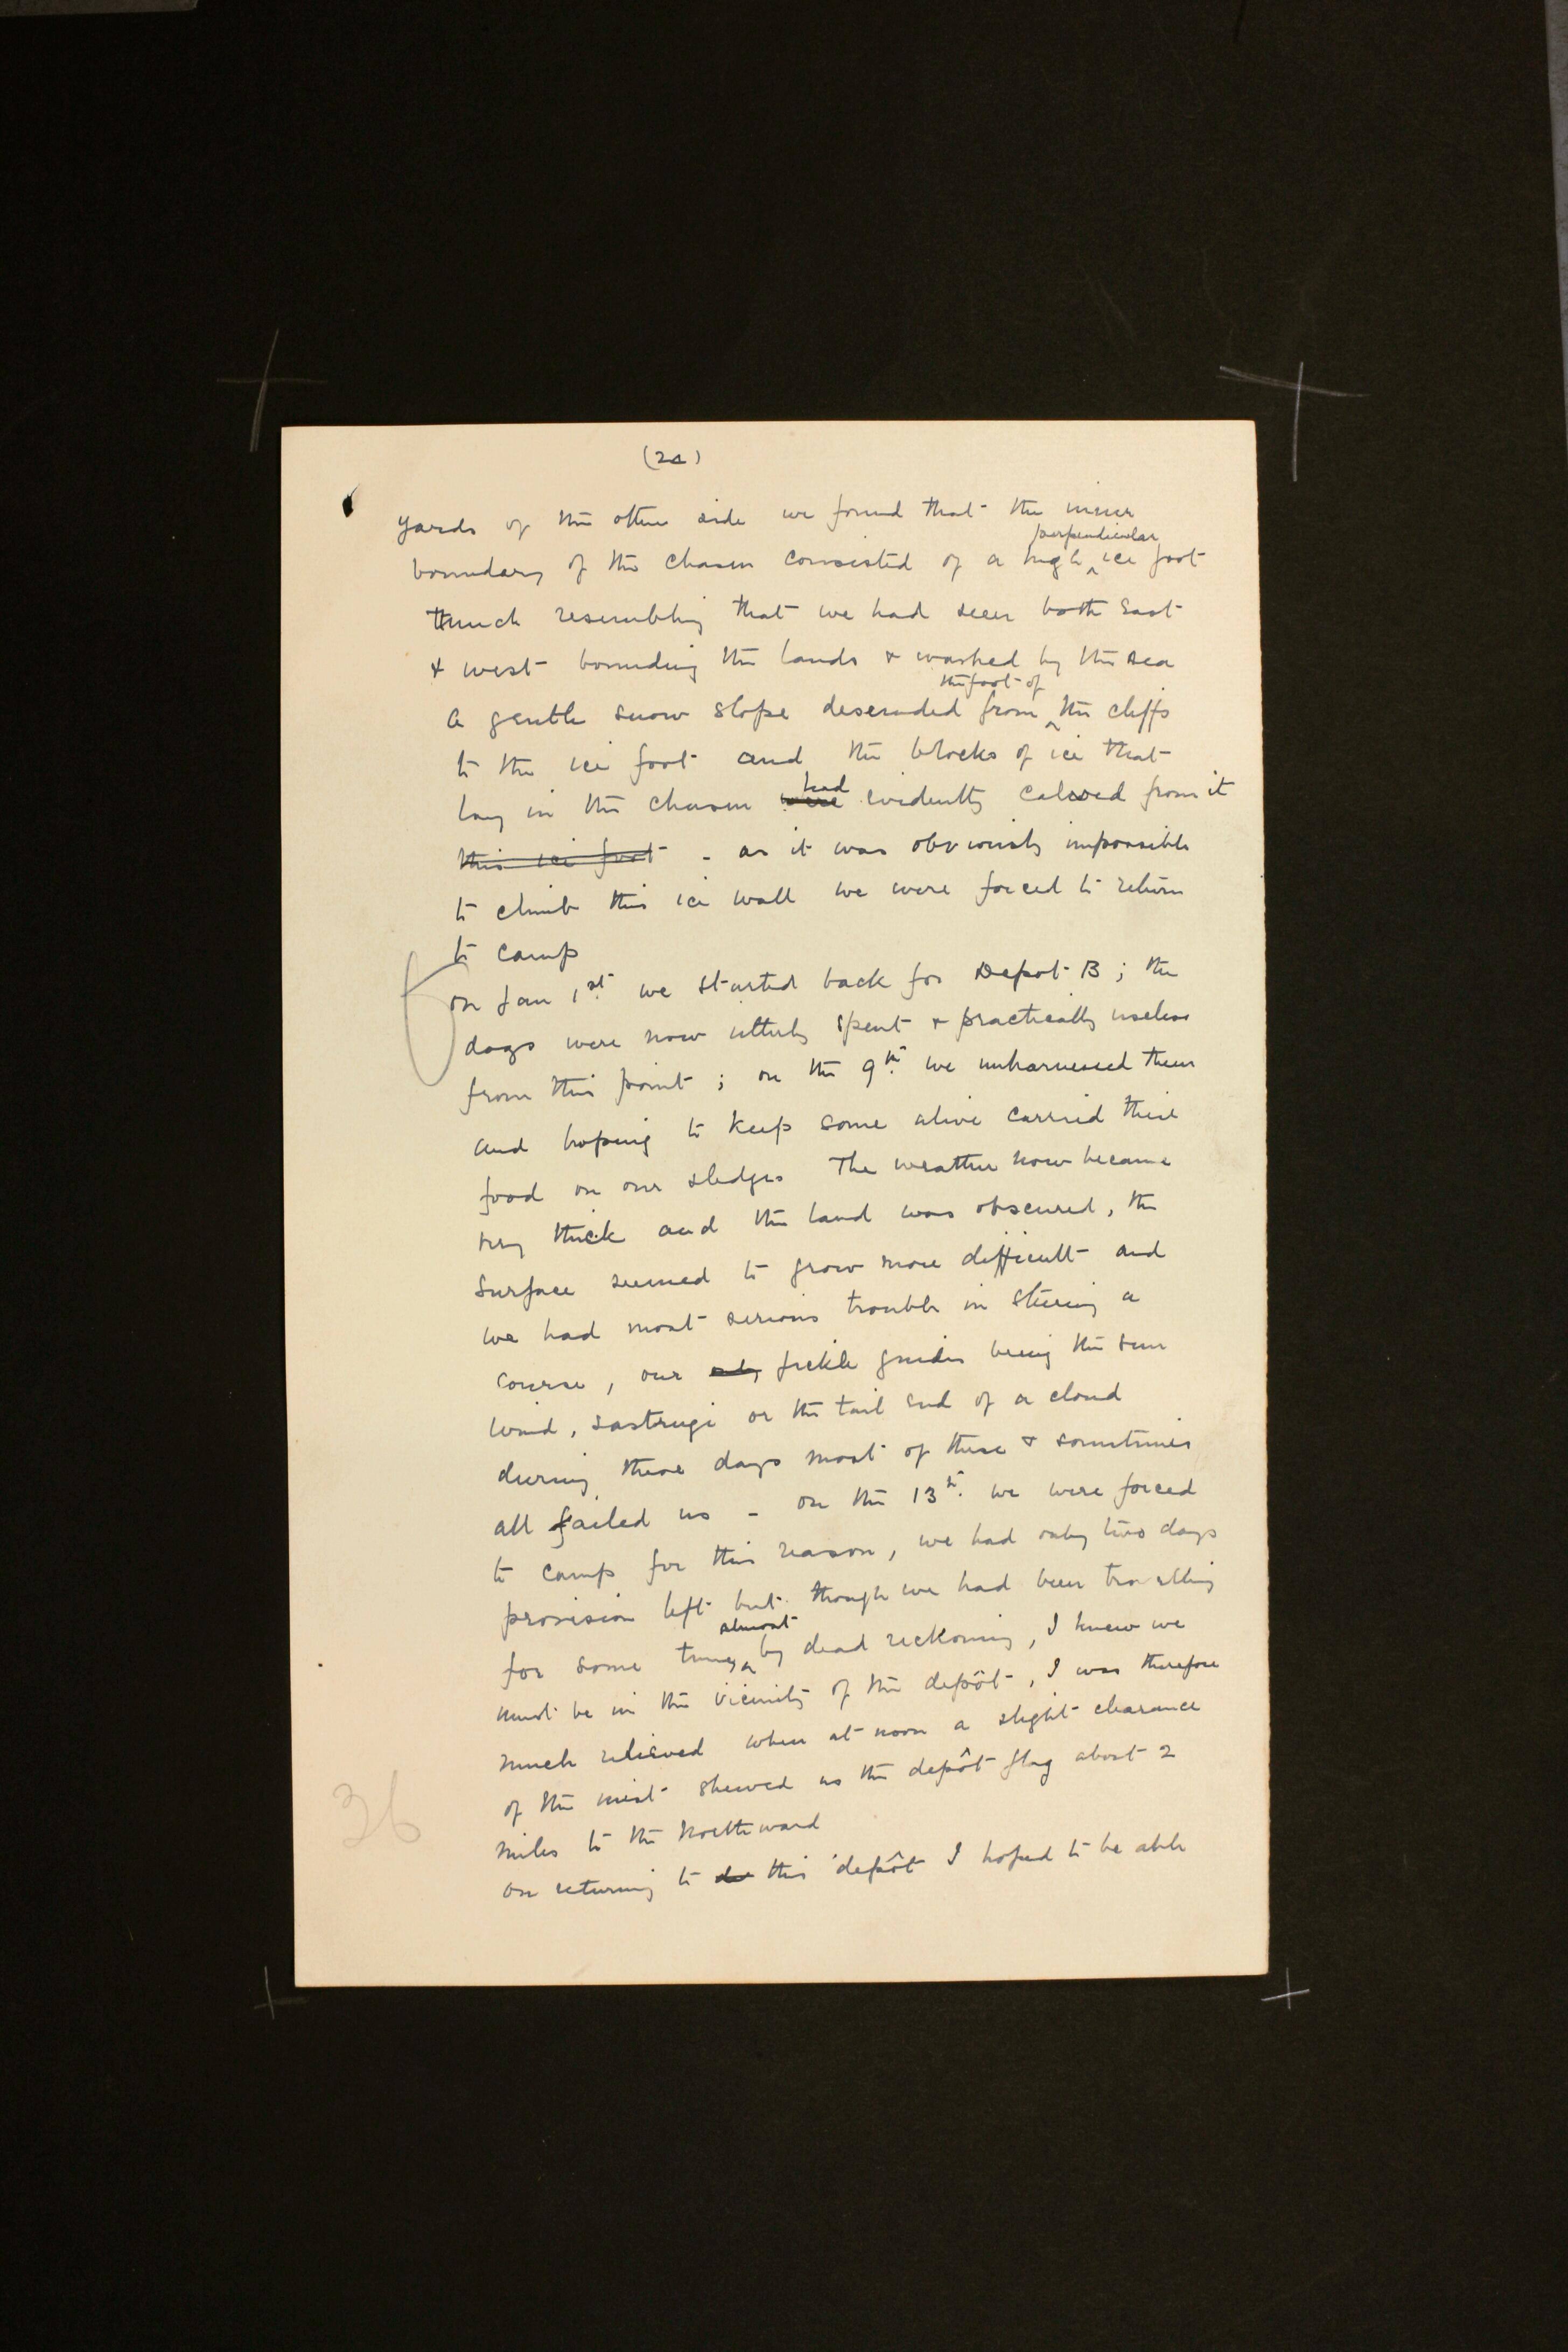 (24)
yards of the other side we found that the inner
perpendicular
boundary of the chasm consisted of a high ^ ice foot
much resembling that we had seen both East
& west bounding the lands & washed by the sea
the foot of
a gentle snow slope descended from ^ the cliffs
to the ice foot and the blocks of ice that
had
lay in the chasm were evidently calved from it
this ice foot - as it was obviously impossible
to climb this ice wall we were forced to return
to camp
on Jan 1st we started back for Depot B ; the
dogs were now utterly spent & practically useless
from this point ; on the 9th we unharnessed them
and hoping to keep some alive carried their
food on our sledges The weather now became
very thick and the land was obscured, the
surface seemed to grow more difficult and
we had most serious trouble in steering a
course, our only fickle guides being the sun
wind, sastrugi or the tail end of a cloud
during these days most of these & sometimes
all failed us - on the 13th we were forced
to camp for this reason, we had only two days
provision left but though we had been travelling
almost
for some time ^ by dead reckoning, I knew we
must be in the vicinity of the depôt, I was therefore
much relieved when at noon a slight clearance
of the mist shewed us the depôt flag about 2
miles to the Northward
on returning to this depôt I hoped to be able
36